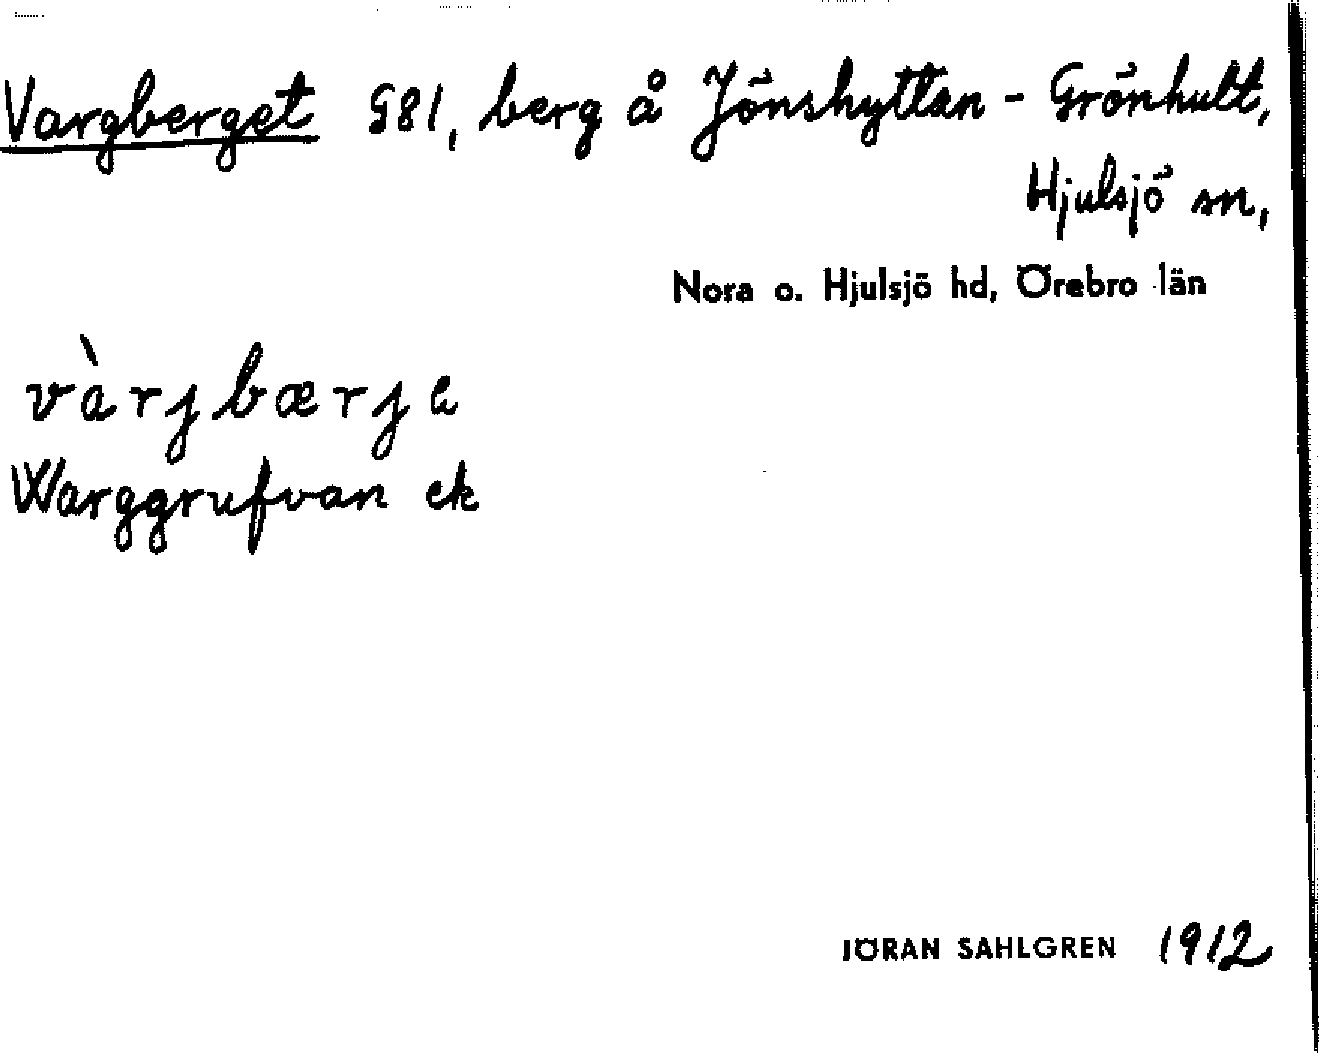 Vargberget G81, berg å Jönshyttan - Grönhult,
Hjulsjö sn,
Nora o. Hjulsjö hd, Örebro län
vàrjbærje
Warggrufvan ek
JÖRAN SAHLGREN 1912